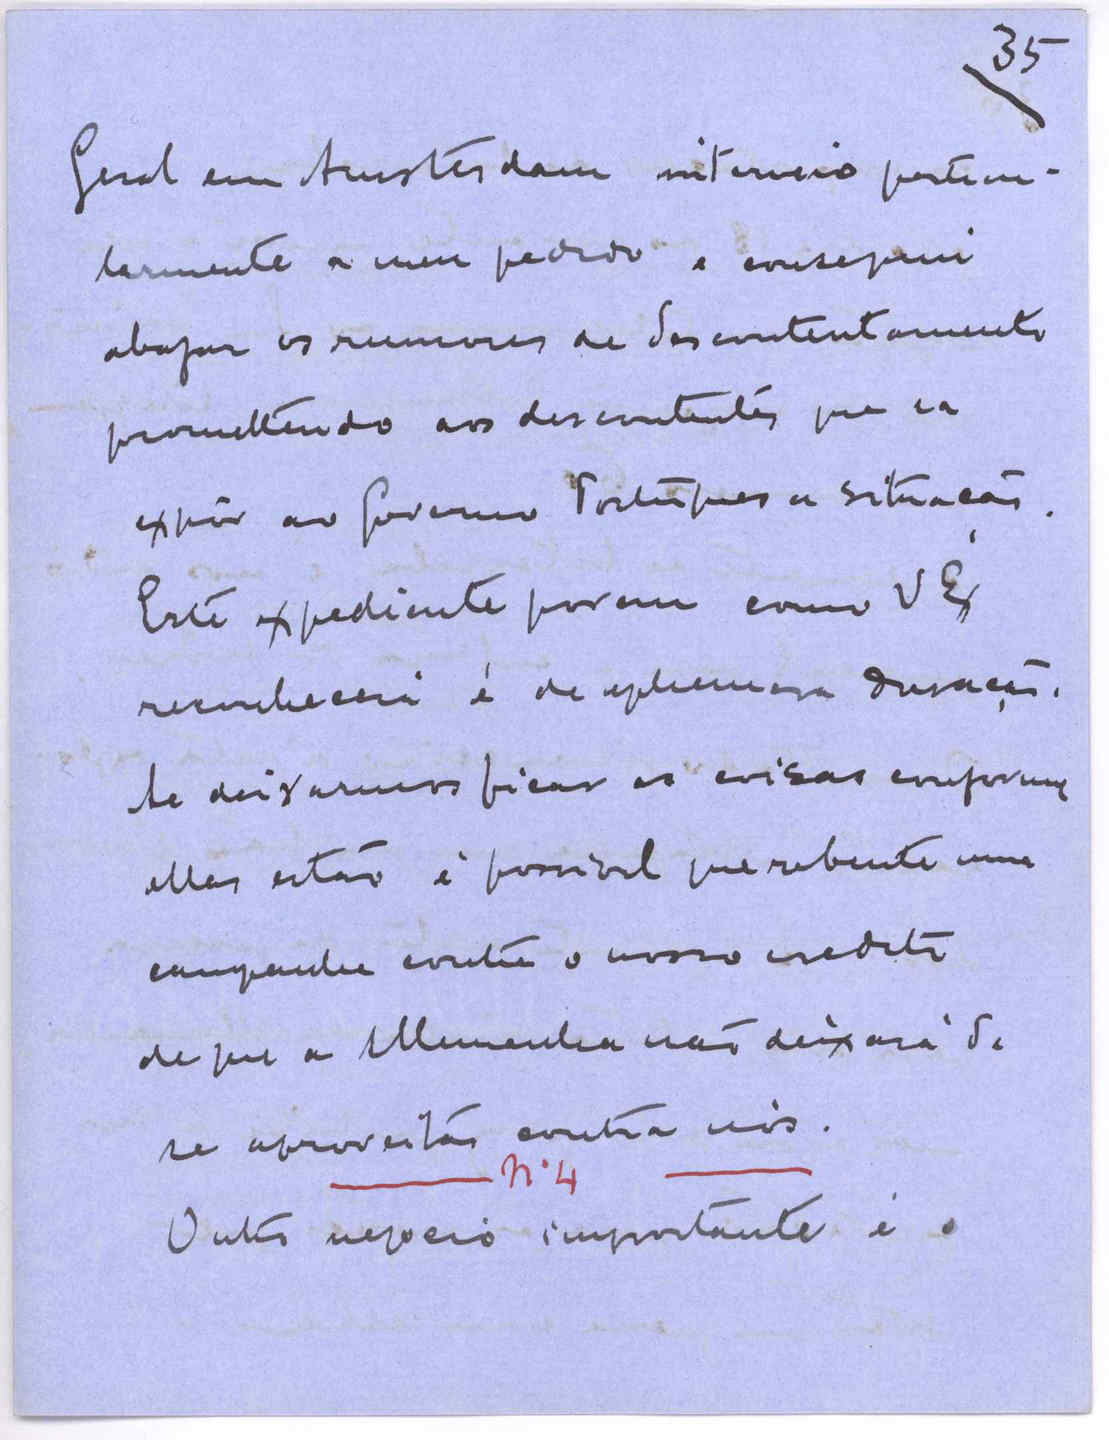 35
Geral em Amsterdam interveio particu-
larmente a meu pedido e consegui
abafar os rumores de descontentamento
promettendo aos descontentes que ia
expôr ao Governo Portuguez a situação.
Este expediente porem como V Exª
reconhecerá é de ephemera duração.
Se deixarmos ficar as coisas conforme
ellas estão é possivel que rebente uma
campanha contra o nosso credito
de que a Allemanha não deixará de
se aproveitar contra nós.
Nº 4
Outro negocio importante é o